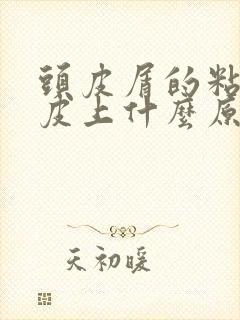 頭皮屑的粘
皮上什麼原
天初暖